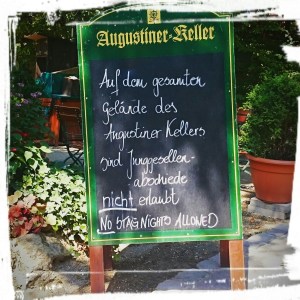 Augustiner-Keller
Auf dem gesamten
Gelände des
Augustiner Kellers
sind Junggesellen-
abschiede
nicht erlaubt
NO STAG NIGHTS ALLOWED